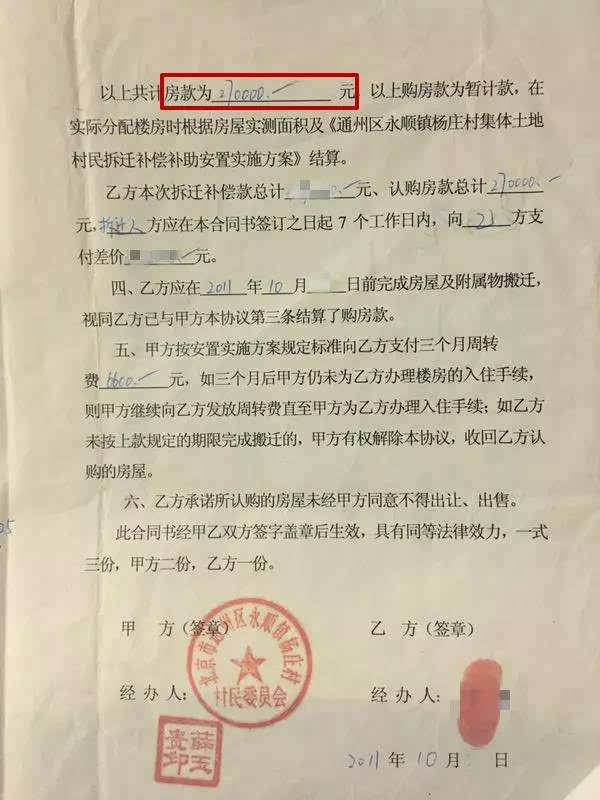 以上共计房款为 270000.- 元 以上购房款为暂计款，在
实际分配楼房时根据房屋实测面积及《通州区永顺镇杨庄村集体土地
村民拆迁补偿补助安置实施方案》结算。
乙方本次拆迁补偿款总计 元、认购房款总计 270000.-
元，拆迁人方应在本合同书签订之日起 7 个工作日内，向 乙 方支
付差价 元。
四、乙方应在 2011 年 10 月 日前完成房屋及附属物搬迁，
视同乙方已与甲方本协议第三条结算了购房款。
五、甲方按安置实施方案规定标准向乙方支付三个月周转
费 6600.- 元，如三个月后甲方仍未为乙方办理楼房的入住手续，
则甲方继续向乙方发放周转费直至甲方为乙方办理入住手续；如乙方
未按上款规定的期限完成搬迁的，甲方有权解除本协议，收回乙方认
购的房屋。
六、乙方承诺所认购的房屋未经甲方同意不得出让、出售。
05
此合同书经甲乙双方签字盖章后生效，具有同等法律效力，一式
三份，甲方二份，乙方一份。
甲 方（签章） 乙 方（签章）
北京市通州区永顺镇杨庄村
村民委员会
经 办 人： 经 办 人：
薛玉
贵印
2011 年 10 月 日